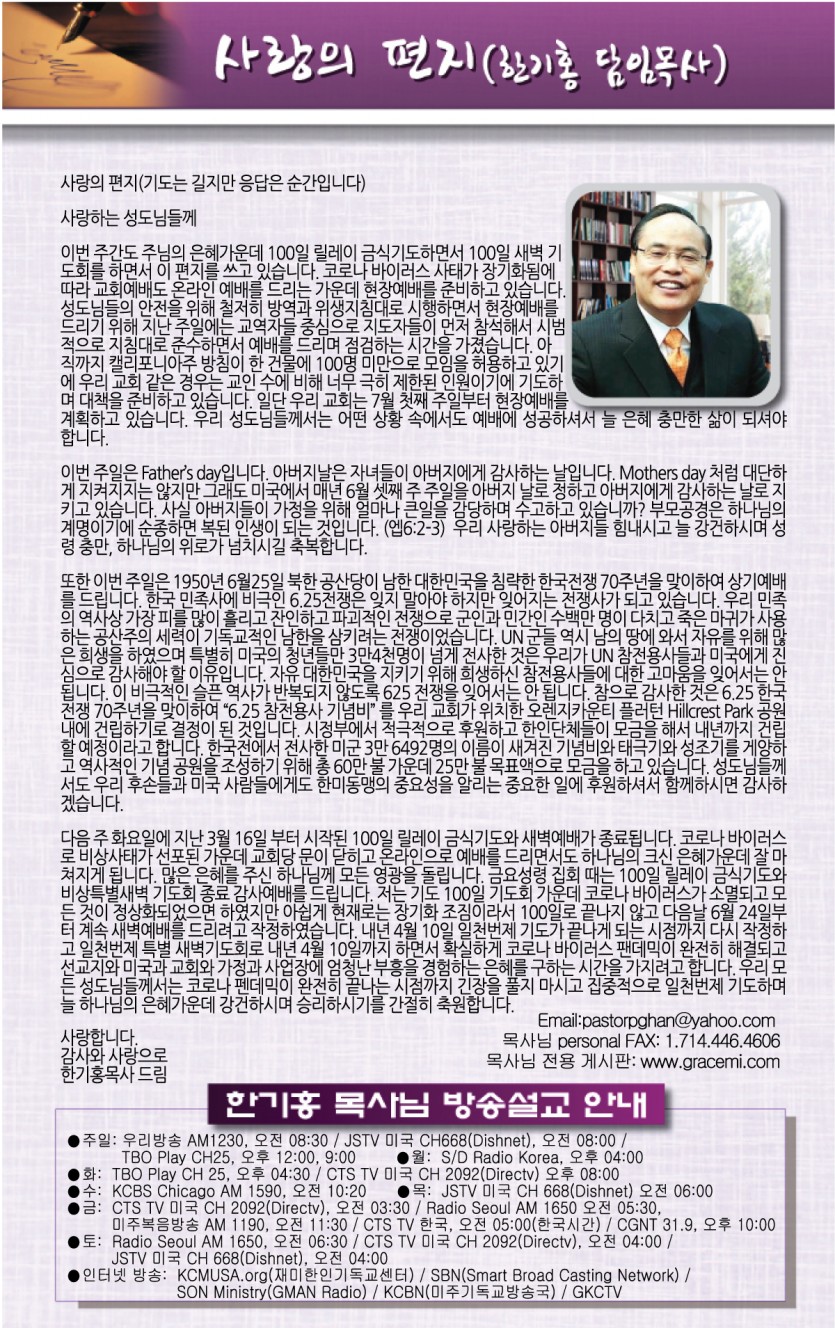 사랑의 편지(한기홍 담임목사)
사랑의 편지(기도는 길지만 응답은 순간입니다)
사랑하는 성도님들께
이번 주간도 주님의 은혜가운데 100일 릴레이 금식기도하면서 100일 새벽 기
도회를 하면서 이 편지를 쓰고 있습니다. 코로나 바이러스 사태가 장기화됨에
따라 교회예배도 온라인 예배를 드리는 가운데 현장예배를 준비하고 있습니다.
성도님들의 안전을 위해 철저히 방역과 위생지침대로 시행하면서 현장예배를
드리기 위해 지난 주일에는 교역자들 중심으로 지도자들이 먼저 참석해서 시범
적으로 지침대로 준수하면서 예배를 드리며 점검하는 시간을 가졌습니다. 아
직까지 캘리포니아주 방침이 한 건물에 100명 미만으로 모임을 허용하고 있기
에 우리 교회 같은 경우는 교인 수에 비해 너무 극히 제한된 인원이기에 기도하
며 대책을 준비하고 있습니다. 일단 우리 교회는 7월 첫째 주일부터 현장예배를
계획하고 있습니다. 우리 성도님들께서는 어떤 상황 속에서도 예배에 성공하셔서 늘 은혜 충만한 삶이 되셔야
합니다.
이번 주일은 Father's day입니다. 아버지날은 자녀들이 아버지에게 감사하는 날입니다. Mothers day 처럼 대단하
게 지켜지지는 않지만 그래도 미국에서 매년 6월 셋째 주 주일을 아버지 날로 정하고 아버지에게 감사하는 날로 지
키고 있습니다. 사실 아버지들이 가정을 위해 얼마나 큰일을 감당하며 수고하고 있습니까? 부모공경은 하나님의
계명이기에 순종하면 복된 인생이 되는 것입니다. (엡6:2-3) 우리 사랑하는 아버지들 힘내시고 늘 강건하시며 성
령 충만, 하나님의 위로가 넘치시길 축복합니다.
또한 이번 주일은 1950년 6월25일 북한 공산당이 남한 대한민국을 침략한 한국전쟁 70주년을 맞이하여 상기예배
를 드립니다. 한국 민족사에 비극인 6.25전쟁은 잊지 말아야 하지만 잊어지는 전쟁사가 되고 있습니다. 우리 민족
의 역사상 가장 피를 많이 흘리고 잔인하고 파괴적인 전쟁으로 군인과 민간인 수백만 명이 다치고 죽은 마귀가 사용
하는 공산주의 세력이 기독교적인 남한을 삼키려는 전쟁이었습니다. UN 군들 역시 남의 땅에 와서 자유를 위해 많
은 희생을 하였으며 특별히 미국의 청년들만 3만4천명이 넘게 전사한 것은 우리가 UN 참전용사들과 미국에게 진
심으로 감사해야 할 이유입니다. 자유 대한민국을 지키기 위해 희생하신 참전용사들에 대한 고마움을 잊어서는 안
됩니다. 이 비극적인 슬픈 역사가 반복되지 않도록 625 전쟁을 잊어서는 안 됩니다. 참으로 감사한 것은 6.25 한국
전쟁 70주년을 맞이하여 “6.25 참전용사 기념비” 를 우리 교회가 위치한 오렌지카운티 플러턴 Hillcrest Park 공원
내에 건립하기로 결정이 된 것입니다. 시정부에서 적극적으로 후원하고 한인단체들이 모금을 해서 내년까지 건립
할 예정이라고 합니다. 한국전에서 전사한 미군 3만 6492명의 이름이 새겨진 기념비와 태극기와 성조기를 게양하
고 역사적인 기념 공원을 조성하기 위해 총 60만 불 가운데 25만 불 목표액으로 모금을 하고 있습니다. 성도님들께
서도 우리 후손들과 미국 사람들에게도 한미동맹의 중요성을 알리는 중요한 일에 후원하셔서 함께하시면 감사하
겠습니다.
다음 주 화요일에 지난 3월 16일 부터 시작된 100일 릴레이 금식기도와 새벽예배가 종료됩니다. 코로나 바이러스
로 비상사태가 선포된 가운데 교회당 문이 닫히고 온라인으로 예배를 드리면서도 하나님의 크신 은혜가운데 잘 마
쳐지게 됩니다. 많은 은혜를 주신 하나님께 모든 영광을 돌립니다. 금요성령 집회 때는 100일 릴레이 금식기도와
비상특별새벽 기도회 종료 감사예배를 드립니다. 저는 기도 100일 기도회 가운데 코로나 바이러스가 소멸되고 모
든 것이 정상화되었으면 하였지만 아쉽게 현재로는 장기화 조짐이라서 100일로 끝나지 않고 다음날 6월 24일부
터 계속 새벽예배를 드리려고 작정하였습니다. 내년 4월 10일 일천번제 기도가 끝나게 되는 시점까지 다시 작정하
고 일천번제 특별 새벽기도회로 내년 4월 10일까지 하면서 확실하게 코로나 바이러스 팬데믹이 완전히 해결되고
선교지와 미국과 교회와 가정과 사업장에 엄청난 부흥을 경험하는 은혜를 구하는 시간을 가지려고 합니다. 우리 모
든 성도님들께서는 코로나 펜데믹이 완전히 끝나는 시점까지 긴장을 풀지 마시고 집중적으로 일천번제 기도하며
늘 하나님의 은혜가운데 강건하시며 승리하시기를 간절히 축원합니다.
Email:pastorpghan@yahoo.com
사랑합니다.
목사님 personal FAX: 1.714.446.4606
감사와 사랑으로
목사님 전용 게시판: www.gracemi.com
한기홍목사 드림
한기홍 목사님 방송설교 안내
●주일: 우리방송 AM1230, 오전 08:30 / JSTV 미국 CH668(Dishnet), 오전 08:00 /
TBO Play CH25, 오후 12:00, 9:00 ●월: S/D Radio Korea, 오후 04:00
●화: TBO Play CH 25, 오후 04:30 / CTS TV 미국 CH 2092(Directv) 오후 08:00
●수: KCBS Chicago AM 1590, 오전 10:20 ●목: JSTV 미국 CH 668(Dishnet) 오전 06:00
●금: CTS TV 미국 CH 2092(Directv), 오전 03:30 / Radio Seoul AM 1650 오전 05:30,
미주복음방송 AM 1190, 오전 11:30 / CTS TV 한국, 오전 05:00(한국시간) / CGNT 31.9, 오후 10:00
●토: Radio Seoul AM 1650, 오전 06:30 / CTS TV 미국 CH 2092(Directv), 오전 04:00 /
JSTV 미국 CH 668(Dishnet), 오전 04:00
●인터넷 방송: KCMUSA.org(재미한인기독교센터) / SBN(Smart Broad Casting Network) /
SON Ministry(GMAN Radio) / KCBN(미주기독교방송국) / GKCTV